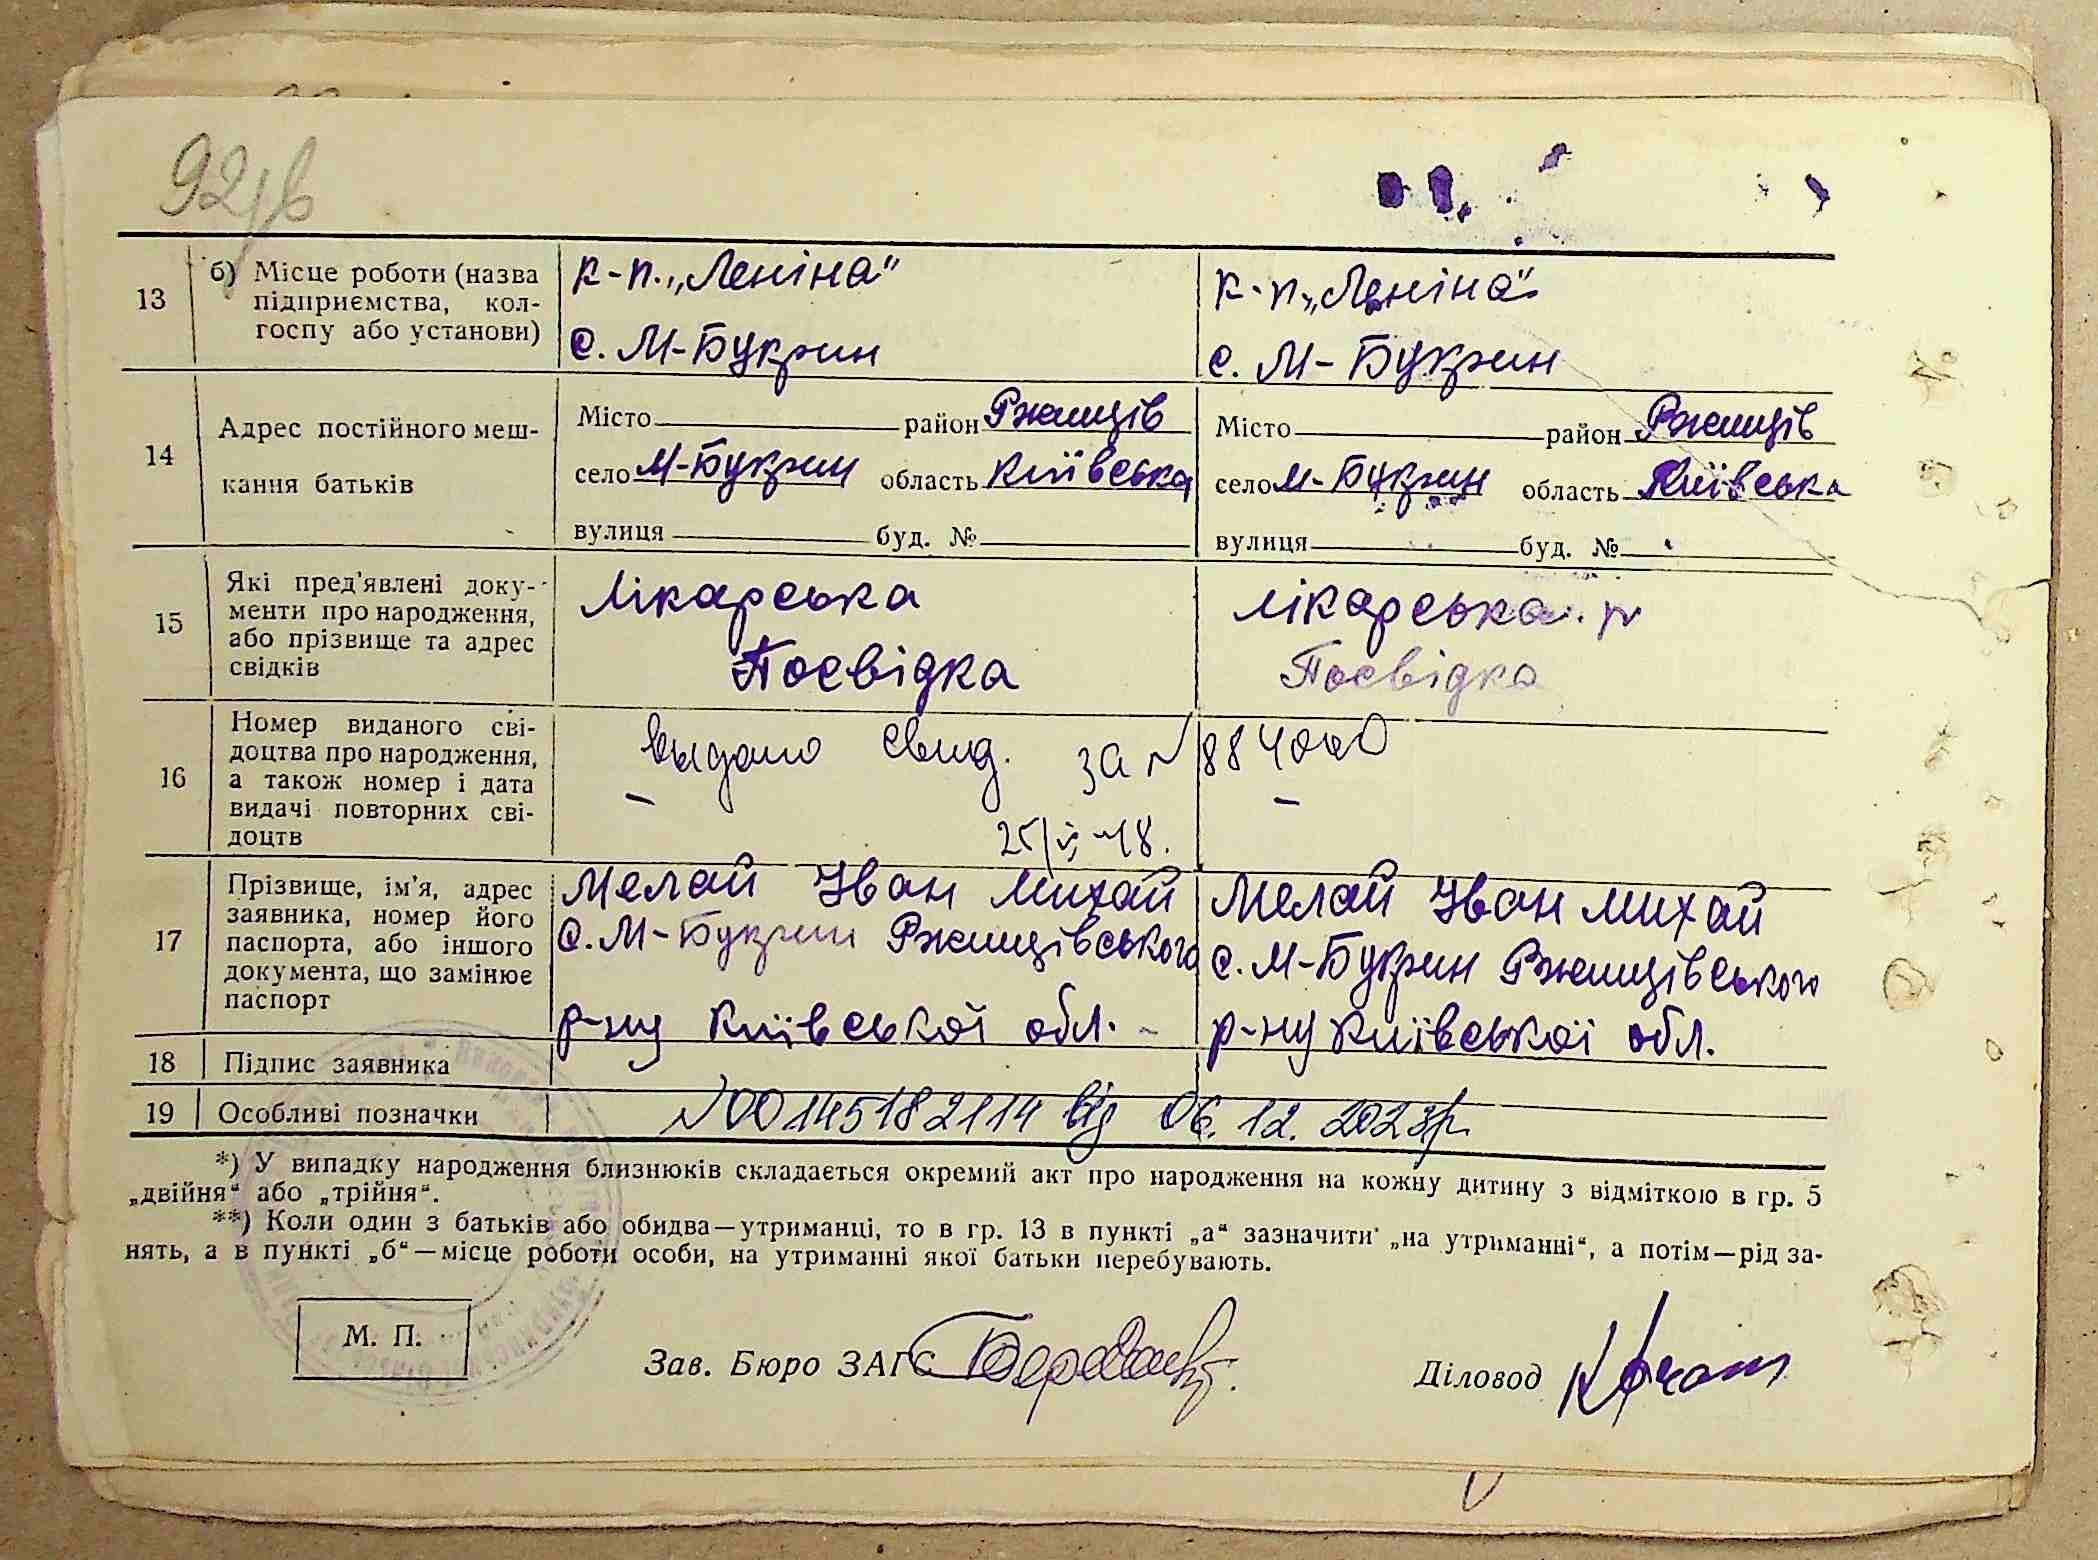 92
13
б) Місце роботи (назва
підприємства, кол-
госпу або установи)
к-п. „Леніна“
с. М-Букрин
к-п. „Леніна“
с. М-Букрин
14
Адрес постійного меш-
кання батьків
Місто район Ржищів
село М-Букрин область Київська
вулиця буд. №
Місто район Ржищів
село М-Букрин область Київська
вулиця буд. №
15
Які пред'явлені доку-
менти про народження,
або прізвище та адрес
свідків
Лікарська
Посвідка
лікарська п
Посвідка
16
Номер виданого сві-
доцтва про народження,
а також номер і дата
видачі повторних сві-
доцтв
выдано свид. за N 884000
17
Прізвище, ім'я, адрес
заявника, номер його
паспорта, або іншого
документа, що замінює
паспорт
Мелай Іван Михай
с. М-Букрин Ржищівського
р-ну Київської обл.
Мелай Іван Михай
с. М-Букрин Ржищівського
р-ну Київської обл.
18 Підпис заявника
19 Особливі позначки
N00145182114 від 06.12.2023р.
*) У випадку народження близнюків складається окремий акт про народження на кожну дитину з відміткою в гр. 5
„двійня“ або „трійня“.
**) Коли один з батьків або обидва—утриманці, то в гр. 13 в пункті „а“ зазначити „на утриманні“, а потім—рід за-
нять, а в пункті „б“—місце роботи особи, на утриманні якої батьки перебувають.
М. П.
Зав. Бюро ЗАГС
Діловод